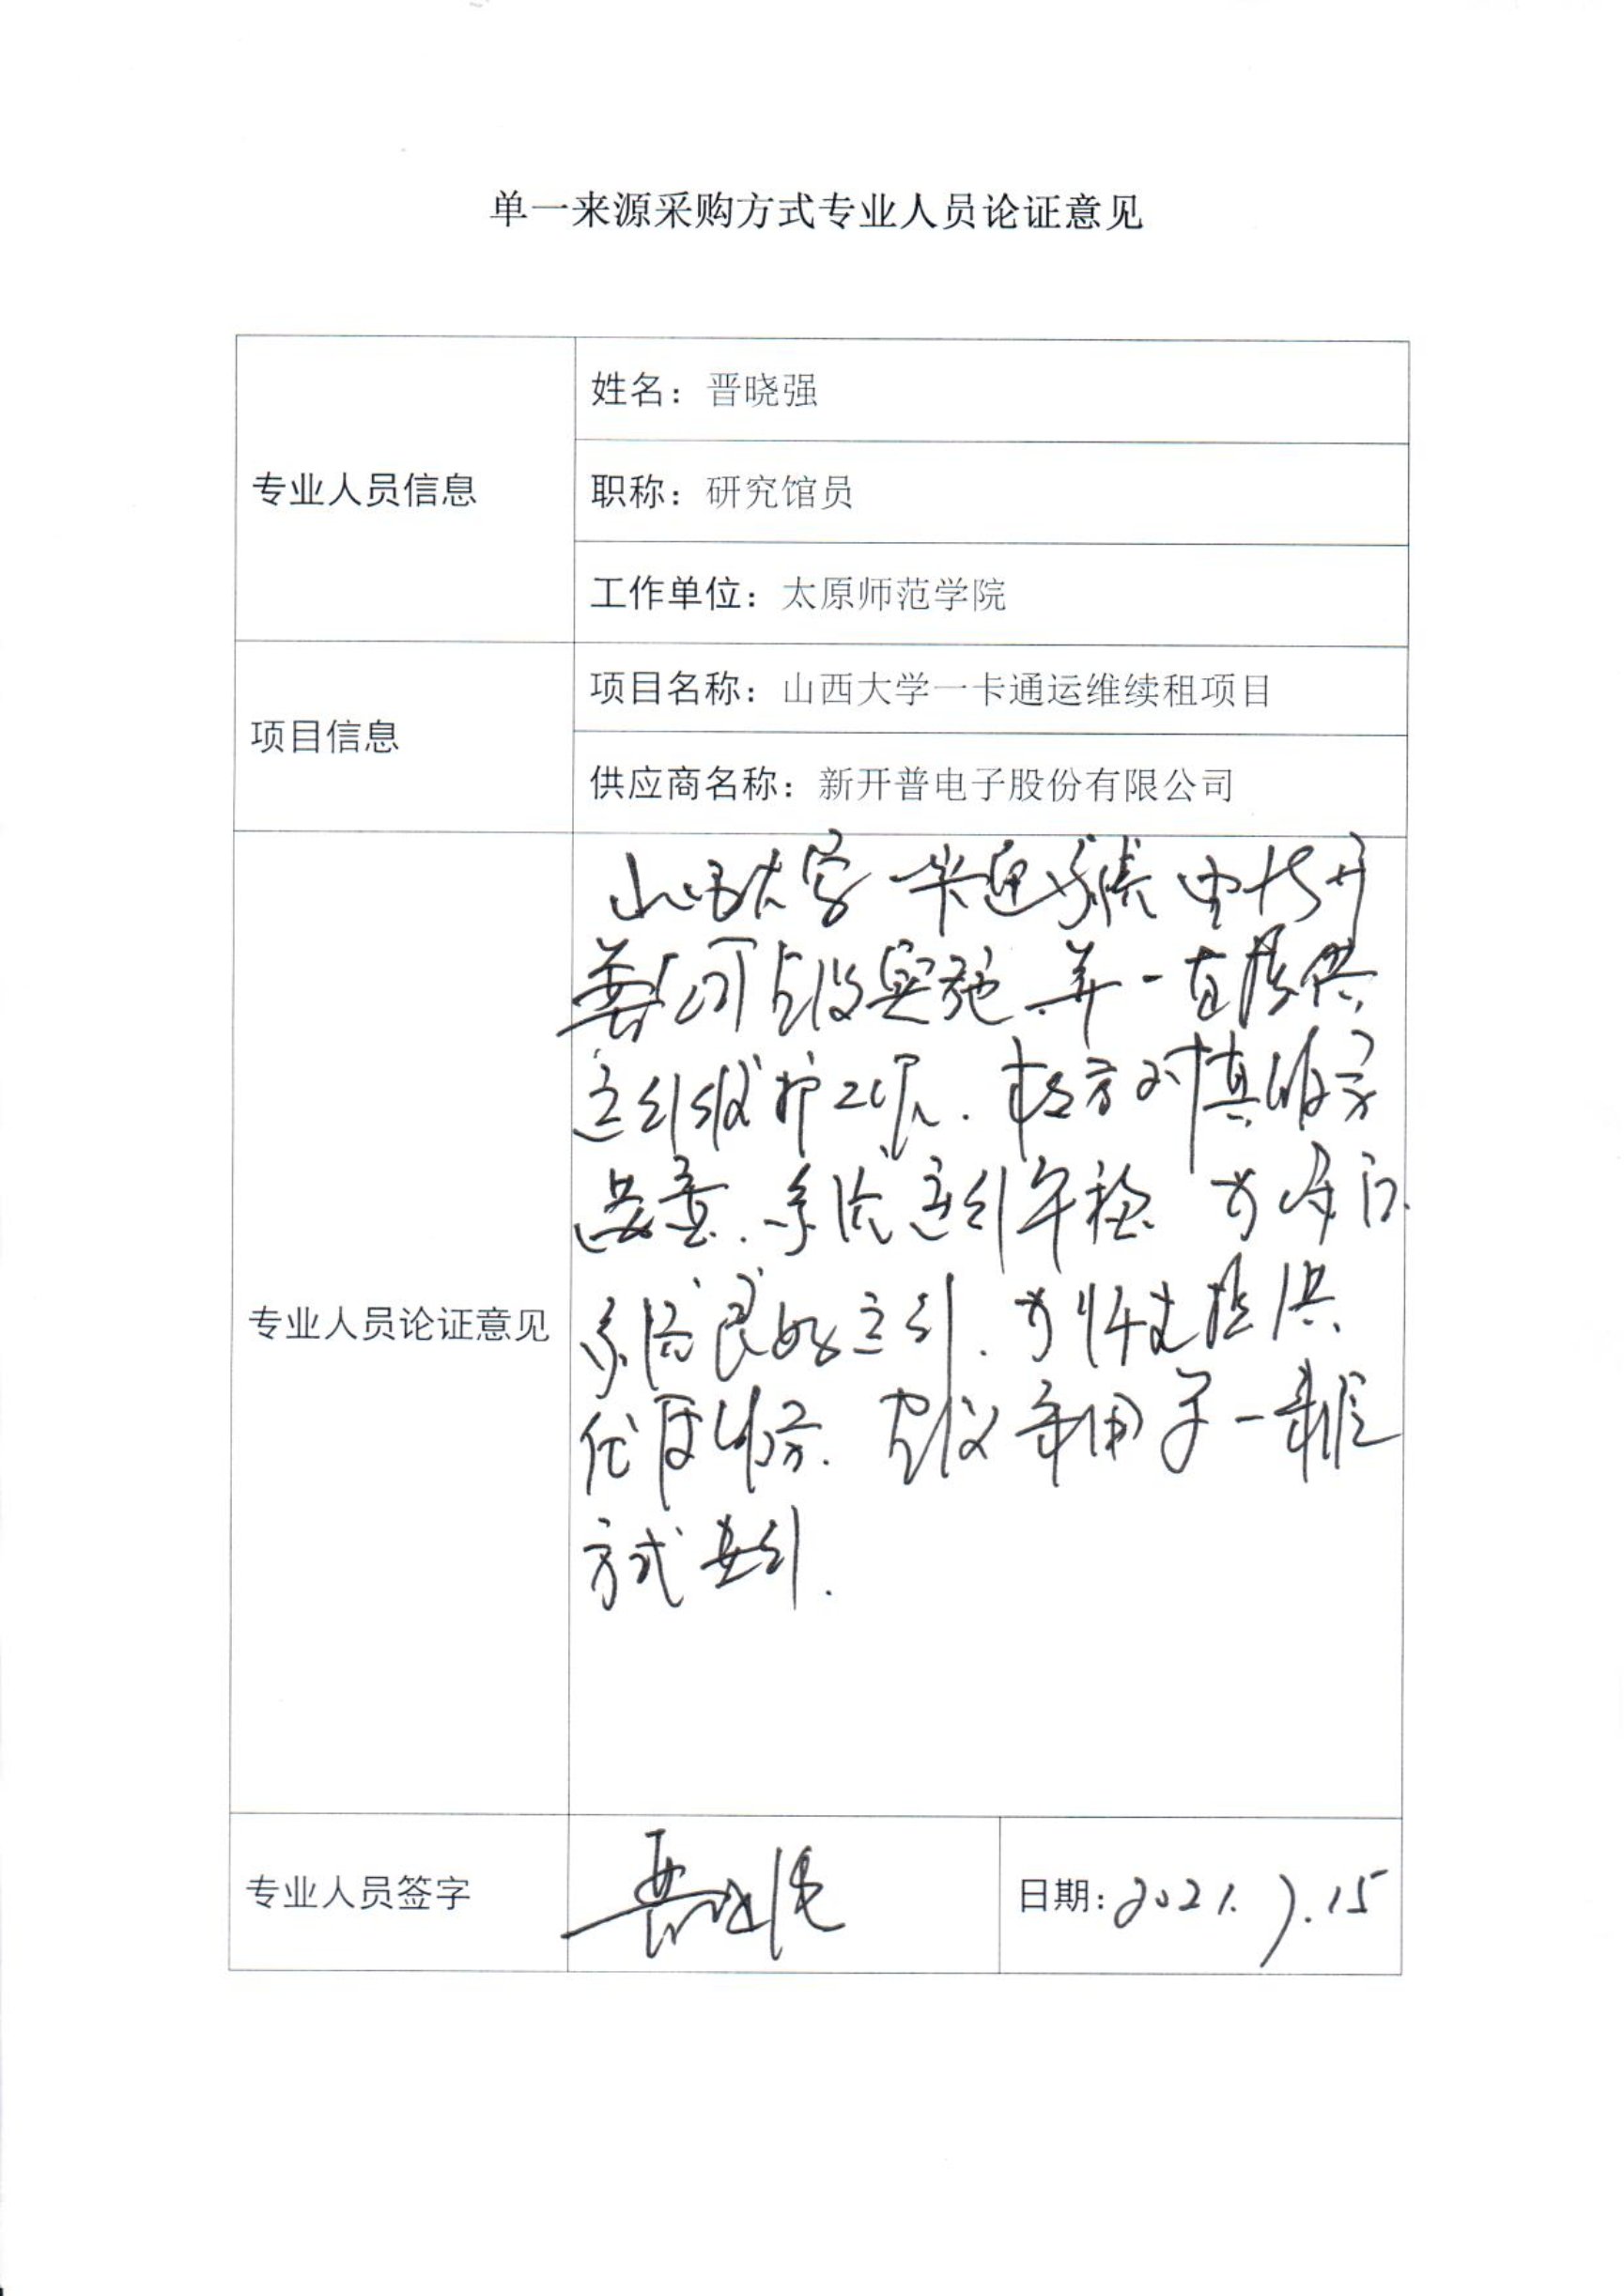 单一来源采购方式专业人员论证意见
专业人员信息
姓名：晋晓强
职称：研究馆员
工作单位：太原师范学院
项目信息
项目名称：山西大学一卡通运维续租项目
供应商名称：新开普电子股份有限公司
专业人员论证意见
山西大学一卡通系统由新开
普公司建设实施 并一直提供
运行维护工作. 校方对其服务
满意. 系统运行平稳 为保证
系统良好运行. 为师生提供
优质服务. 建议采用单一来源
方式进行.
专业人员签字
晋晓强
日期：2021.7.15